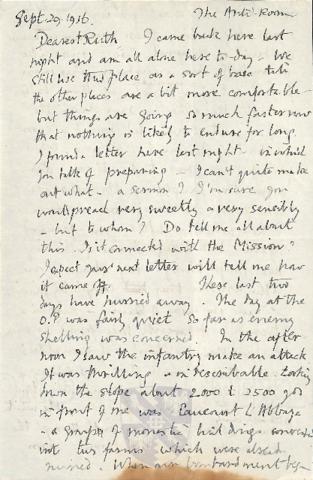 Sept. 20, 1916. The Ante-Room
Dearest Ruth I came back here last
night and am all alone here to-day - We
still use this place as a sort of base till
the other places are a bit more comfortable -
but things are going so much faster now
that nothing is likely to endure for long.
I found a letter here last night - in which
you talk of preparing - I can't quite make
out what - a sermon? I'm sure you
would preach very sweetly & very sensibly
- but to whom? Do tell me all about
this. Is it connected with the Mission?
I expect your next letter will tell me how
it came off. These last two
days have hurried away. The day at the
O.P. was fairly quiet so far as enemy
shelling was concerned. In the after
noon I saw the infantry make an attack
It was thrilling & indescribable. Looking
down the slope about 2000 to 2500 yds
in front of me was Eaucourt L'Abbaye
- a group of monastic buildings converted
into two farms which were already
ruined. When our bombardment began